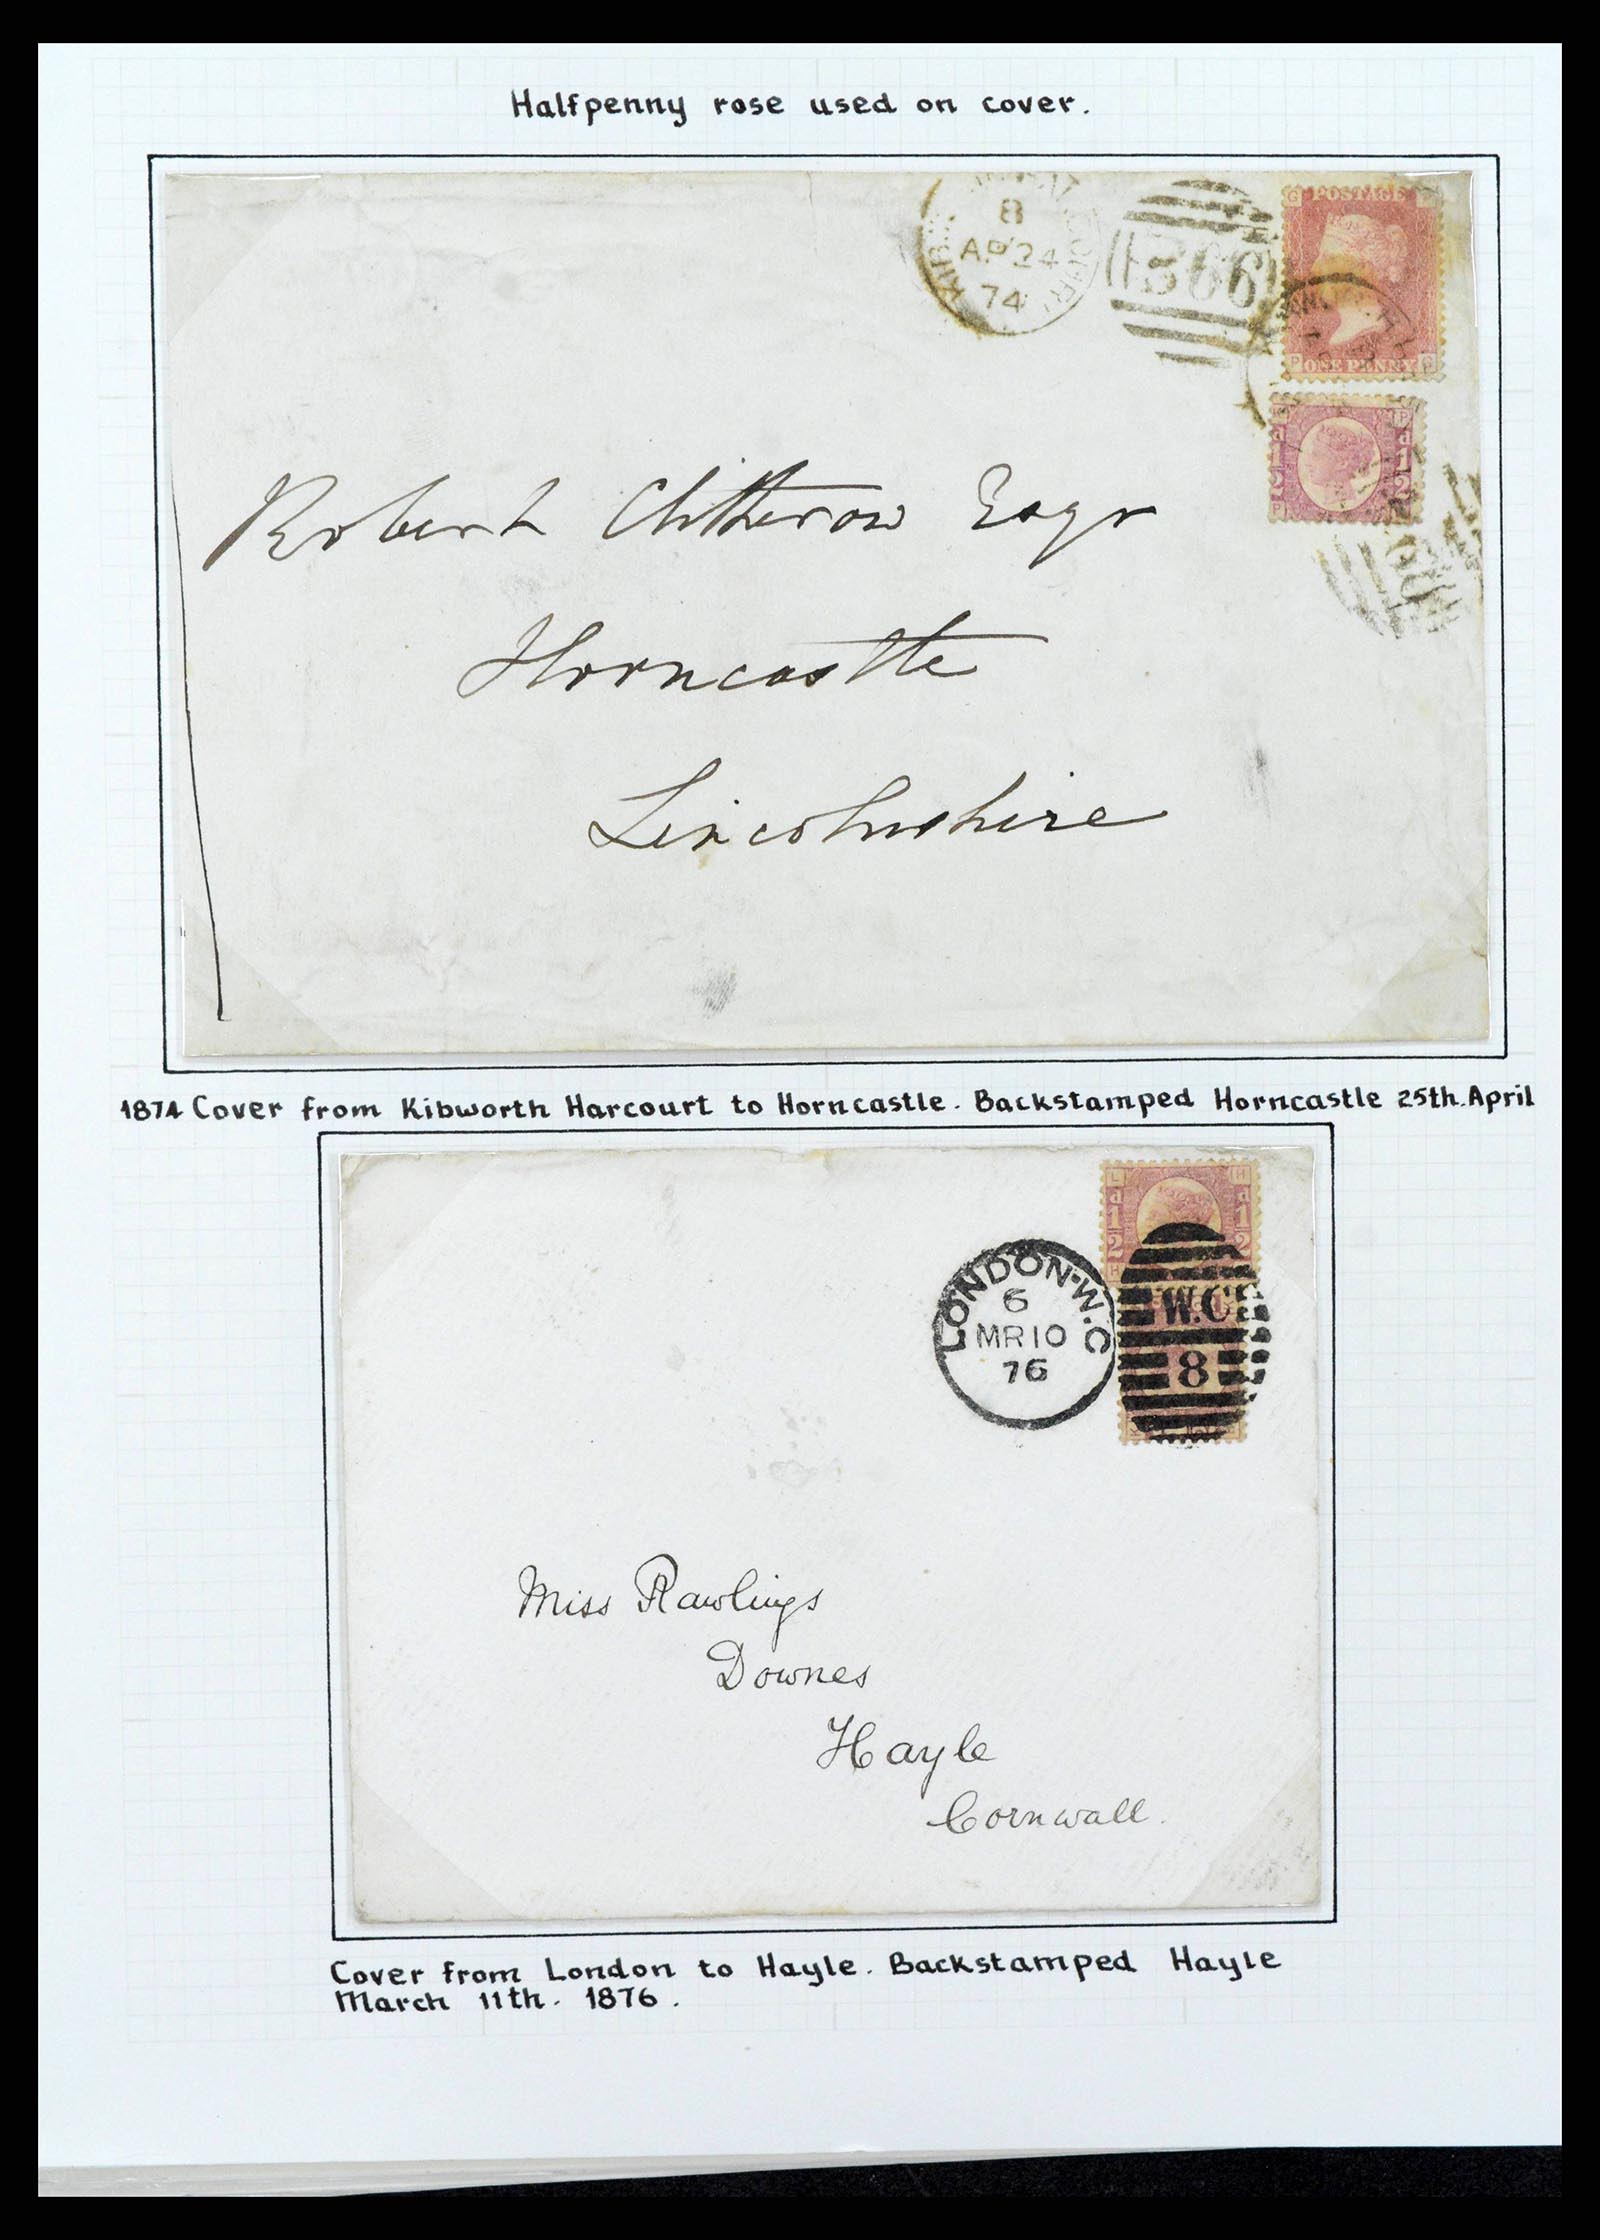 Halfpenny rose used on cover.
8
AP 24
74
366
G POSTAGE
P ONE PENNY G
P
d 1/2 d 1/2
P
Robert Clitherow Esqr
Horncastle
Lincolnshire
1874 Cover from Kibworth Harcourt to Horncastle. Backstamped Horncastle 25th. April
L H
d 1/2 d 1/2
H
LONDON·W.C
6
MR 10
76
W.C
8
Miss Rawlings
Downes
Hayle
Cornwall.
Cover from London to Hayle. Backstamped Hayle
March 11th. 1876.